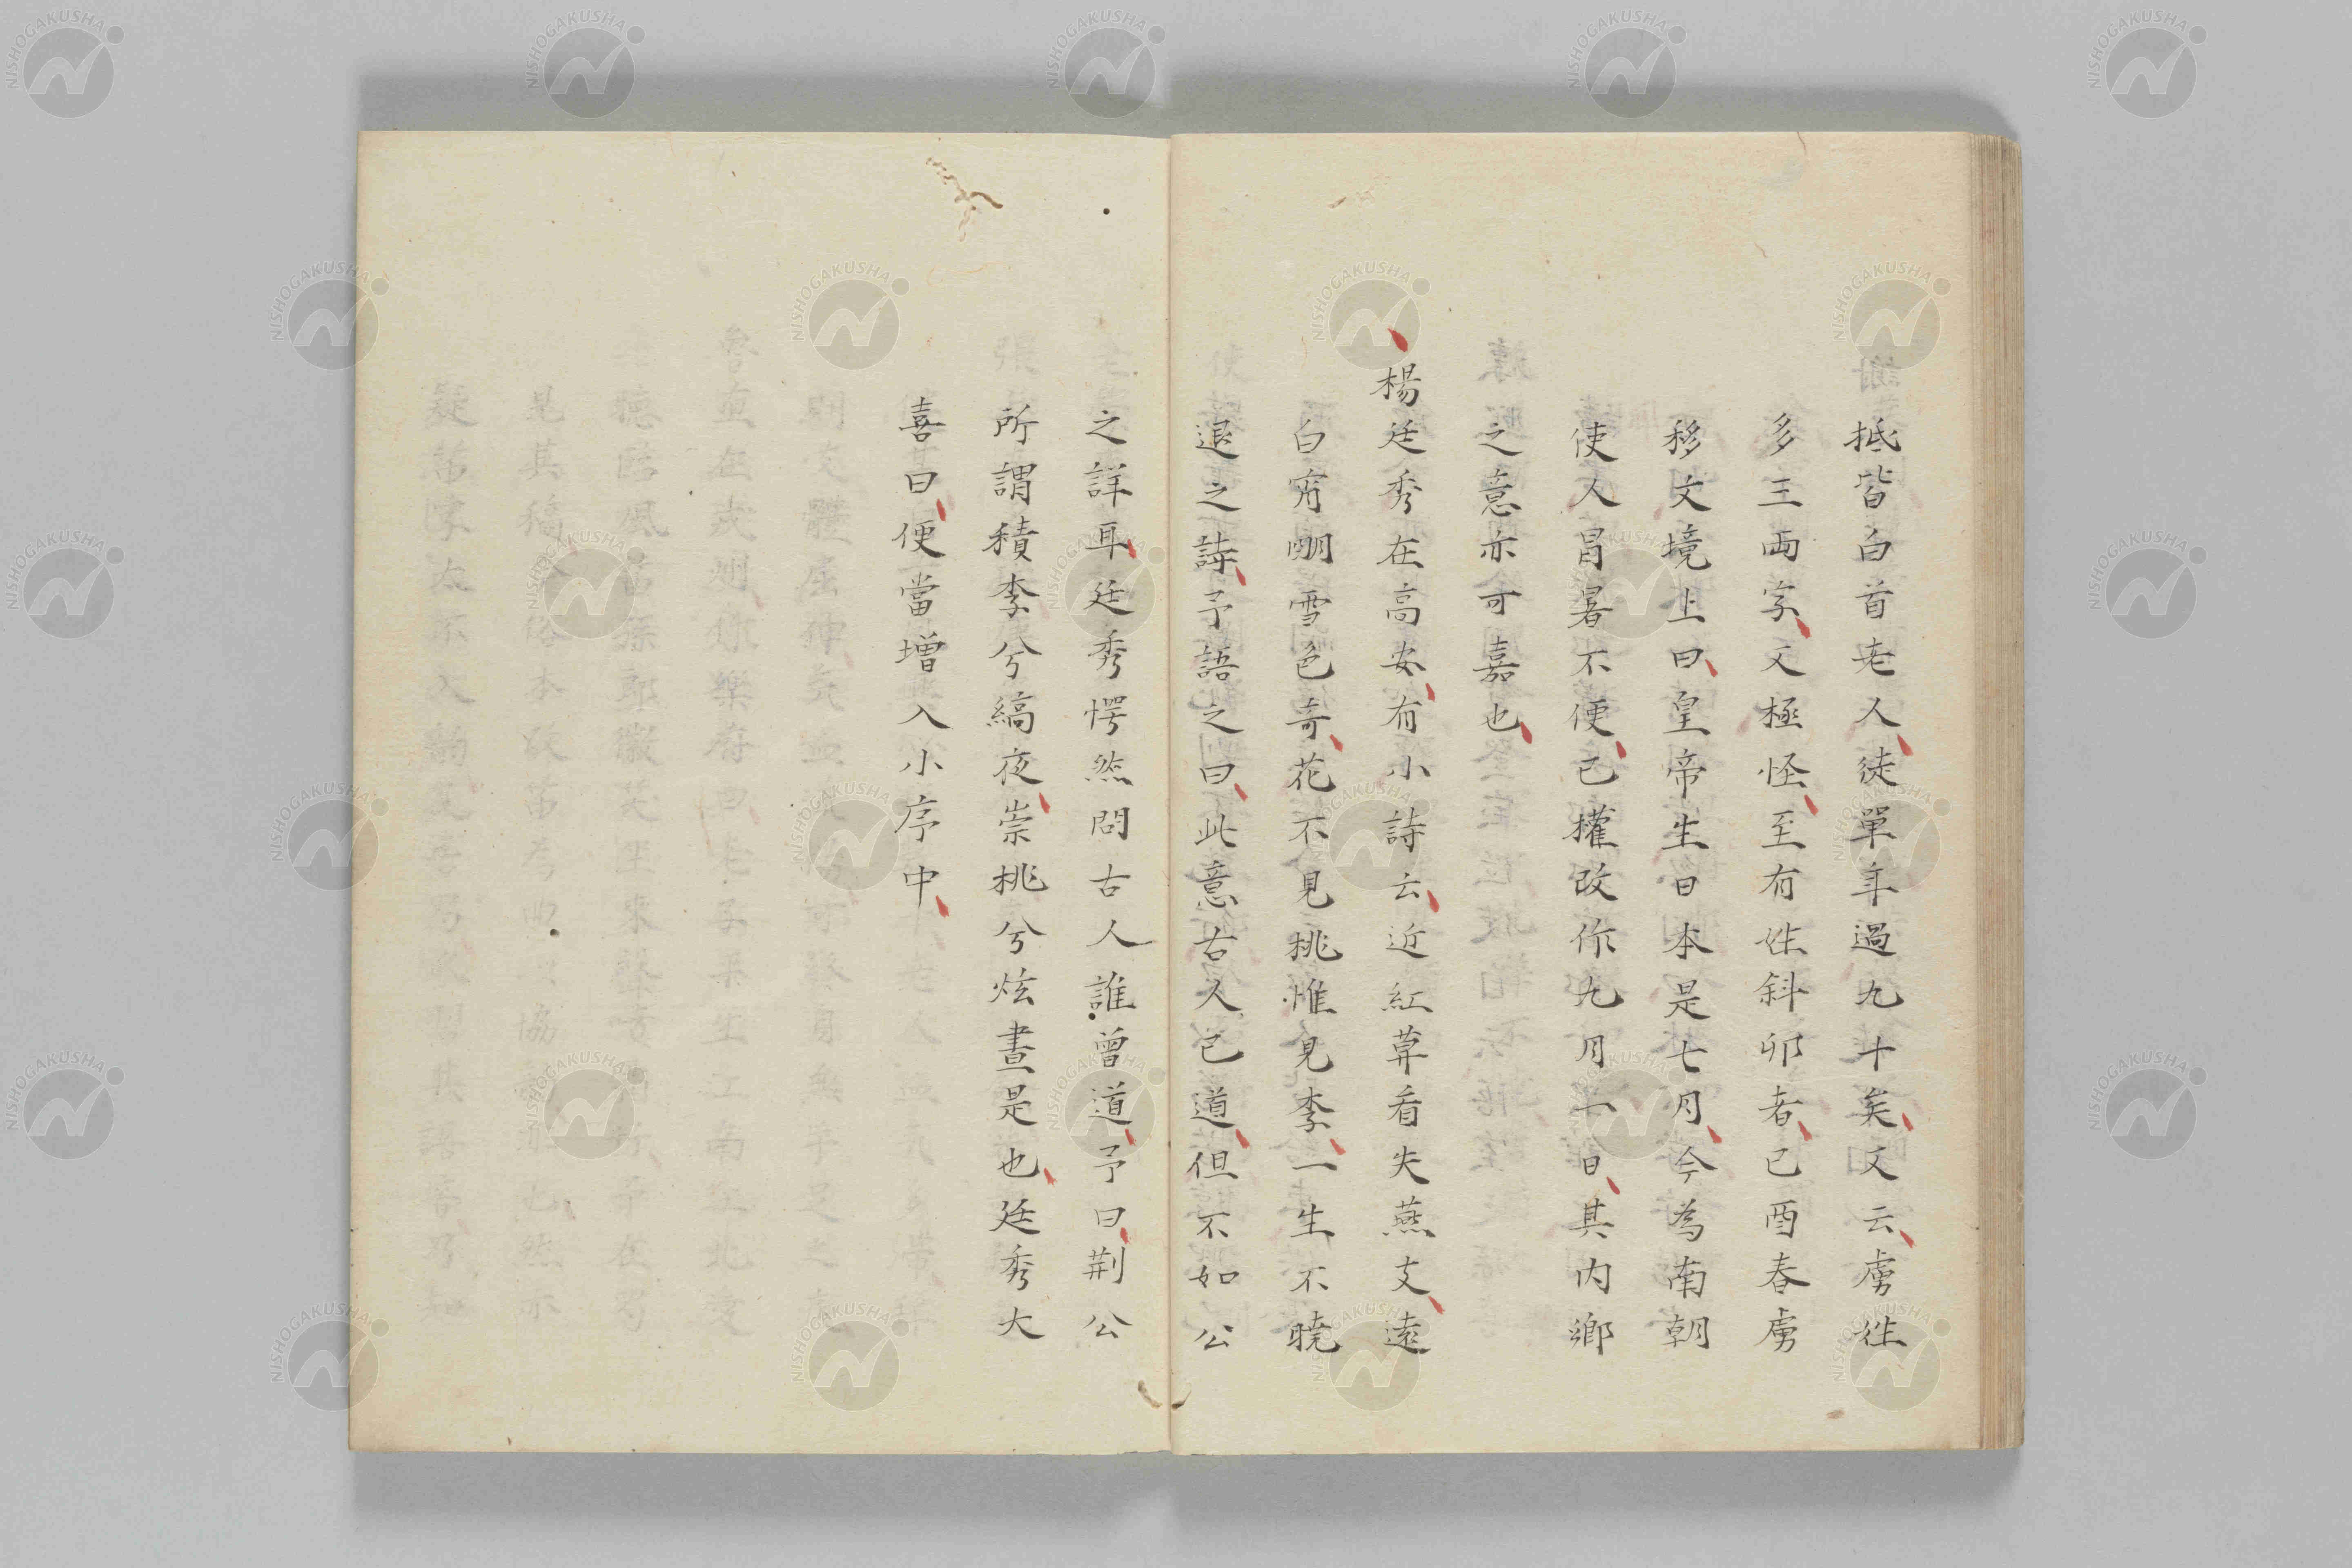 抵皆白首老人徒單年過九十矣文云虜姓
多三兩字文極怪至有姓斜卯者已酉春虜
移文境上曰皇帝生日本是七月今為南朝
使人冒暑不便已權改作九月一日其內鄉
之意亦可嘉也
楊廷秀在高安有小詩云近紅暮看失燕支遠
白宵明雪色奇花不見桃惟見李一生不曉
退之詩予語之曰此意古人已道但不如公
之詳耳廷秀愕然問古人誰曾道予曰荆公
所謂積李兮縞夜崇桃兮炫晝是也廷秀大
喜曰便當增入小序中
NISHOGAKUSHA